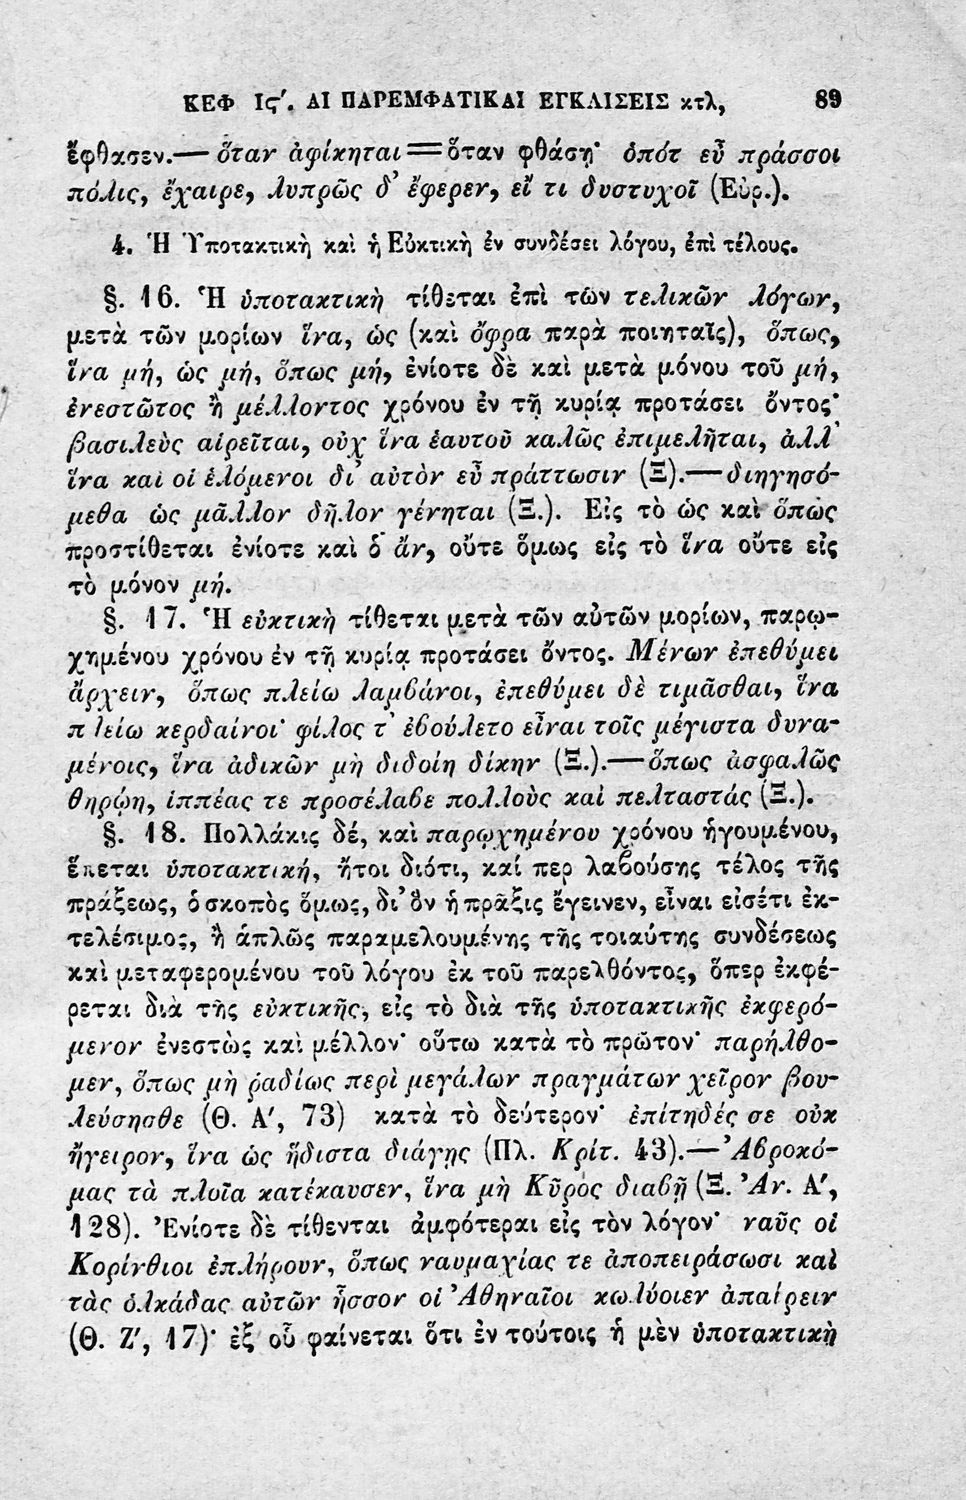 ΚΕΦ Ις'. ΑΙ ΠΑΡΕΜΦΑΤΙΚΑΙ ΕΓΚΛΙΣΕΙΣ κτλ, 89
ἔφθασεν.— ὅταν ἀφίκηται=ὅταν φθάσῃ· ὁπότ εὖ πράσσοι
πόλις, ἔχαιρε, λυπρῶς δ' ἔφερεν, εἴ τι δυστυχοῖ (Εὐρ.).
4. Ἡ Ὑποτακτικὴ καὶ ἡ Εὐκτικὴ ἐν συνδέσει λόγου, ἐπὶ τέλους.
§. 16. Ἡ ὑποτακτικὴ τίθεται ἐπὶ τῶν τελικῶν λόγων,
μετὰ τῶν μορίων ἵνα, ὡς (καὶ ὄφρα παρὰ ποιηταῖς), ὅπως,
ἵνα μή, ὡς μή, ὅπως μή, ἐνίοτε δὲ καὶ μετὰ μόνου τοῦ μή,
ἐνεστῶτος ἢ μέλλοντος χρόνου ἐν τῇ κυρίᾳ προτάσει ὄντος·
βασιλεὺς αἱρεῖται, οὐχ ἵνα ἑαυτοῦ καλῶς ἐπιμελῆται, ἀλλ'
ἵνα καὶ οἱ ἑλόμενοι δι' αὐτὸν εὖ πράττωσιν (Ξ).—διηγησό-
μεθα ὡς μᾶλλον δῆλον γένηται (Ξ.). Εἰς τὸ ὡς καὶ ὅπως
προστίθεται ἐνίοτε καὶ ὁ ἄν, οὔτε ὅμως εἰς τὸ ἵνα οὔτε εἰς
τὸ μόνον μή.
§. 17. Ἡ εὐκτικὴ τίθεται μετὰ τῶν αὐτῶν μορίων, παρῳ-
χημένου χρόνου ἐν τῇ κυρίᾳ προτάσει ὄντος. Μένων ἐπεθύμει
ἄρχειν, ὅπως πλείω λαμβάνοι, ἐπεθύμει δὲ τιμᾶσθαι, ἵνα
πλείω κερδαίνοι· φίλος τ' ἐβούλετο εἶναι τοῖς μέγιστα δυνα-
μένοις, ἵνα ἀδικῶν μὴ διδοίη δίκην (Ξ.).—ὅπως ἀσφαλῶς
θηρῴη, ἱππέας τε προσέλαβε πολλοὺς καὶ πελταστάς (Ξ.).
§. 18. Πολλάκις δέ, καὶ παρῳχημένου χρόνου ἡγουμένου,
ἕπεται ὑποτακτική, ἤτοι διότι, καί περ λαβούσης τέλος τῆς
πράξεως, ὁ σκοπὸς ὅμως, δι' ὃν ἡ πρᾶξις ἔγεινεν, εἶναι εἰσέτι ἐκ-
τελέσιμος, ἢ ἁπλῶς παραμελουμένης τῆς τοιαύτης συνδέσεως
καὶ μεταφερομένου τοῦ λόγου ἐκ τοῦ παρελθόντος, ὅπερ ἐκφέ-
ρεται διὰ τῆς εὐκτικῆς, εἰς τὸ διὰ τῆς ὑποτακτικῆς ἐκφερό-
μενον ἐνεστὼς καὶ μέλλον· οὕτω κατὰ τὸ πρῶτον· παρήλθο-
μεν, ὅπως μὴ ῥᾳδίως περὶ μεγάλων πραγμάτων χεῖρον βου-
λεύσησθε (Θ. Α', 73) κατὰ τὸ δεύτερον· ἐπίτηδές σε οὐκ
ἤγειρον, ἵνα ὡς ἥδιστα διάγῃς (Πλ. Κρίτ. 43).—Ἀβροκό-
μας τὰ πλοῖα κατέκαυσεν, ἵνα μὴ Κῦρος διαβῇ (Ξ. Ἀν. Α',
128). Ἐνίοτε δὲ τίθενται ἀμφότεραι εἰς τὸν λόγον· ναῦς οἱ
Κορίνθιοι ἐπλήρουν, ὅπως ναυμαχίας τε ἀποπειράσωσι καὶ
τὰς ὁλκάδας αὐτῶν ἧσσον οἱ Ἀθηναῖοι κωλύοιεν ἀπαίρειν
(Θ. Ζ', 17)· ἐξ οὗ φαίνεται ὅτι ἐν τούτοις ἡ μὲν ὑποτακτικὴ